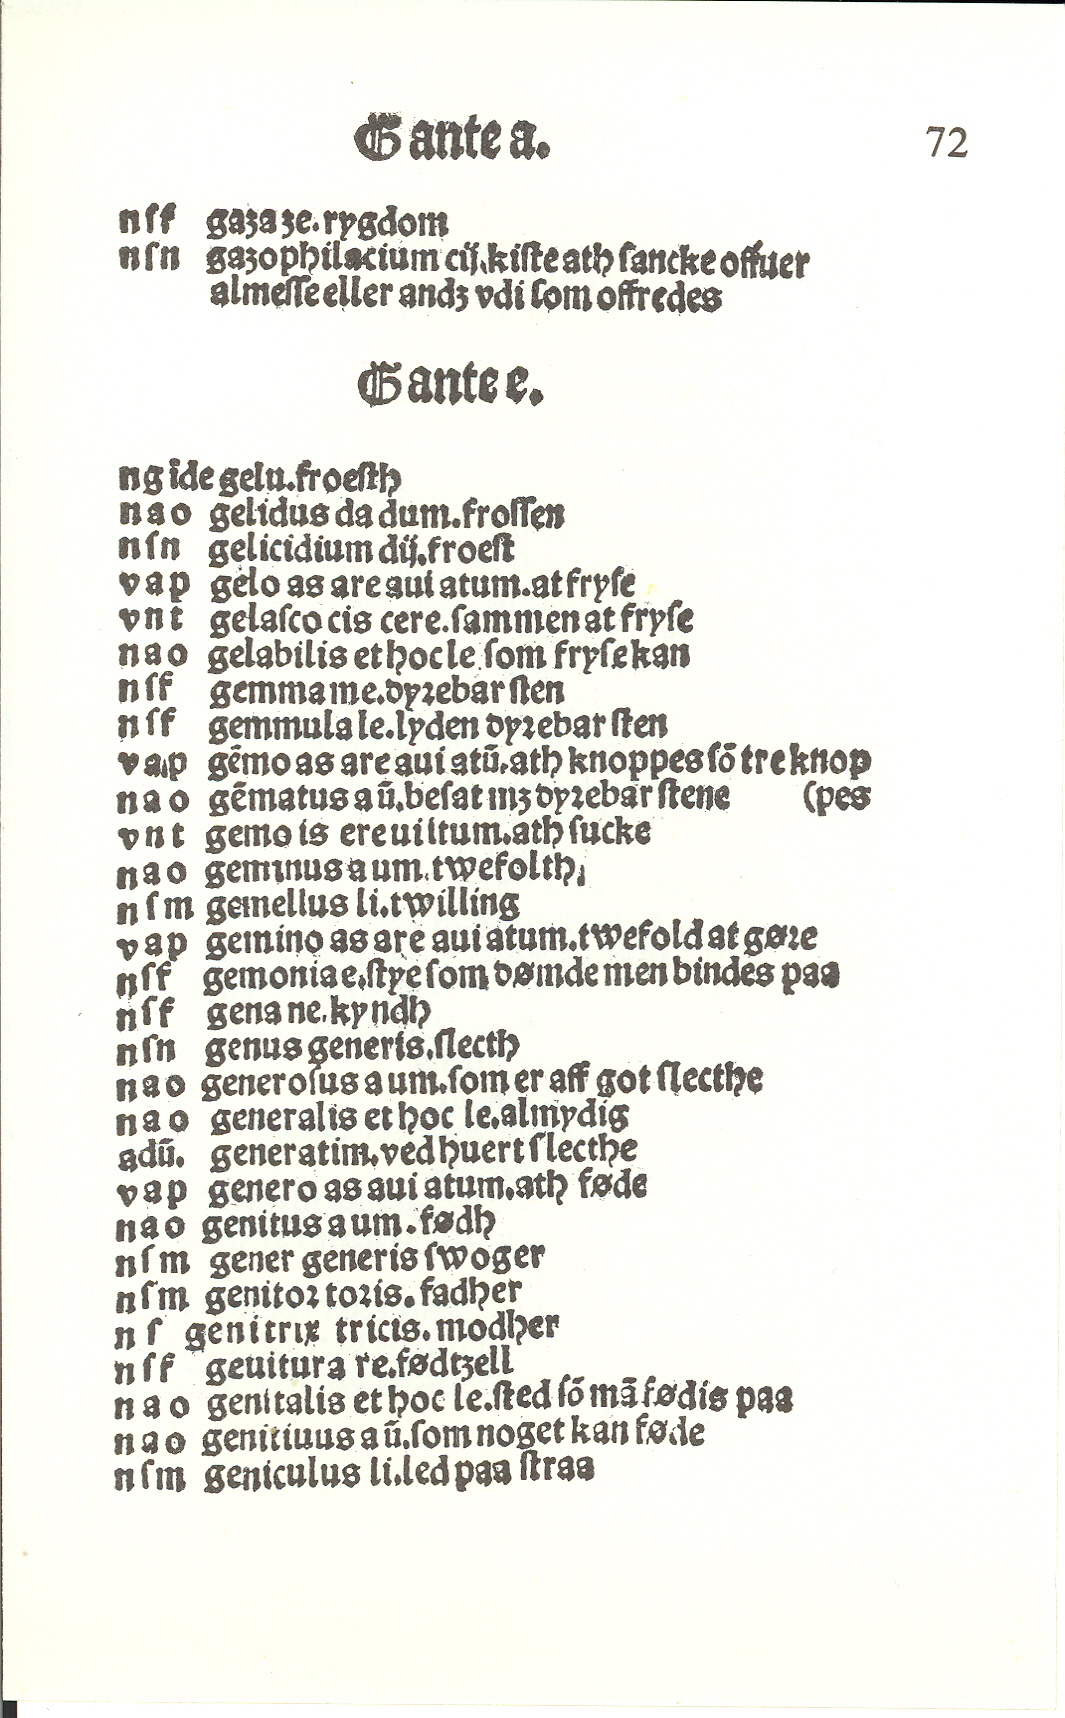 G ante a.
72
nſf gaza ze. rygdom
nſn gazophilacium cij. kiſte ath ſancke offuer
almeſſe eller andꝫ vdi ſom offredes
G ante e.
ng īde gelu. froeſth
nao gelidus da dum. froſſen
nſn gelicidium dij. froeſt
vap gelo as are aui atum. at fryſe
vnt gelaſco cis cere. ſammen at fryſe
nao gelabilis et hoc le ſom fryſe kan
nſf gemma me. dyꝛebar ſten
nſf gemmula le. lyden dyꝛebar ſten
vap gēmo as are aui atū. ath knoppes ſō tre knop
nao gēmatus a ū. beſat mꝫ dyꝛebar ſtene (pes
vnt gemo is ere ui itum. ath ſucke
nao geminus a um. twefolth
nſm gemellus li. twilling
vap gemino as are aui atum. twefold at gøꝛe
nſf gemonia e. ſtye ſom dømde men bindes paa
nſf gena ne. kyndh
nſn genus generis. ſlecth
nao generoſus a um. ſom er aff got ſlecthe
nao generalis et hoc le. almydig
adū. generatim. ved huert ſlecthe
vap genero as aui atum. ath føde
nao genitus a um. fødh
nſm gener generis ſwoger
nſm genitoꝛ toꝛis. fadher
nſ genitrix tricis. modher
nſf geuitura re. fødtzell
nao genitalis et hoc le. ſted ſō mā fødis paa
nao genitiuus a ū. ſom noget kan føde
nſm geniculus li. led paa ſtraa